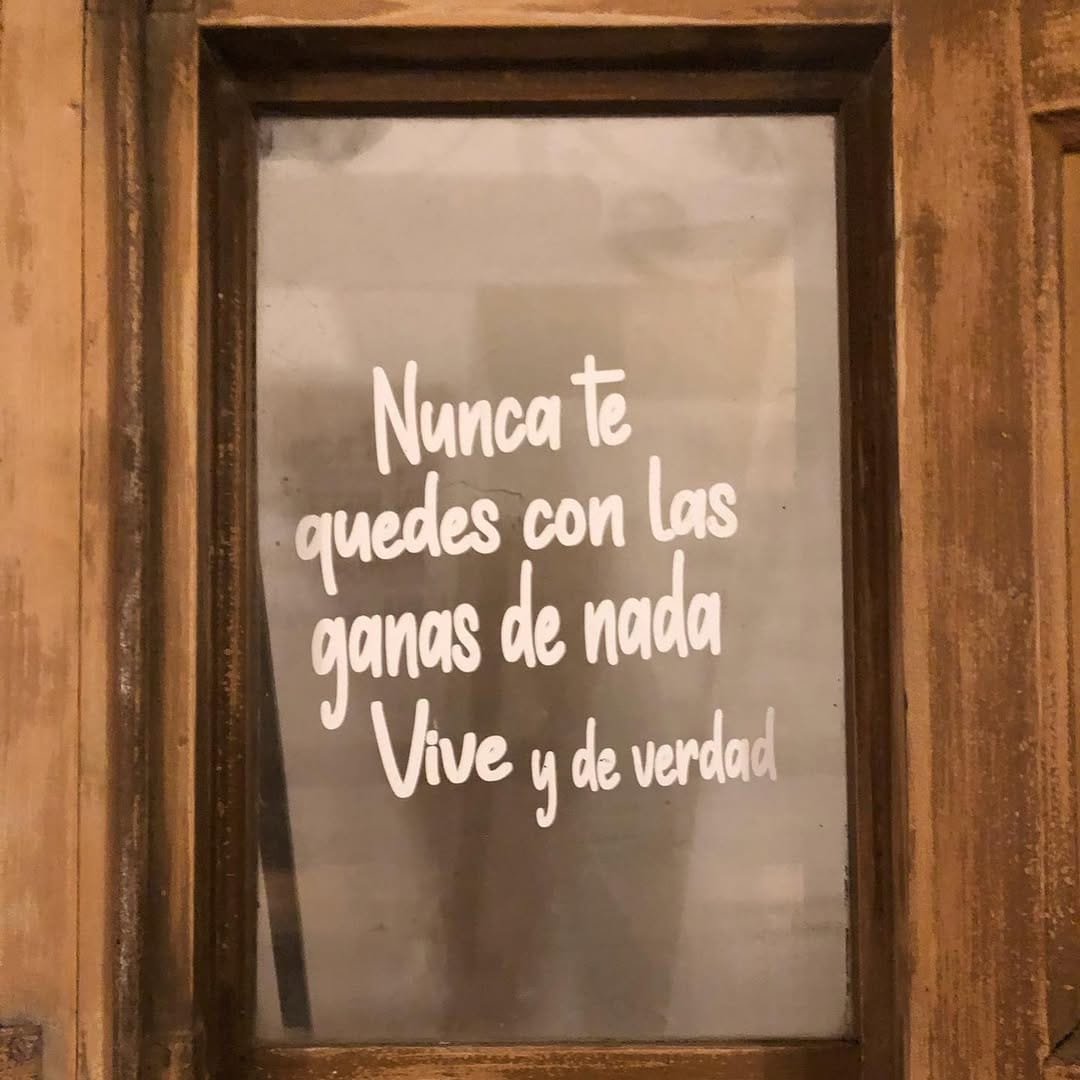 Nunca te
quedes con las
ganas de nada
Vive y de verdad